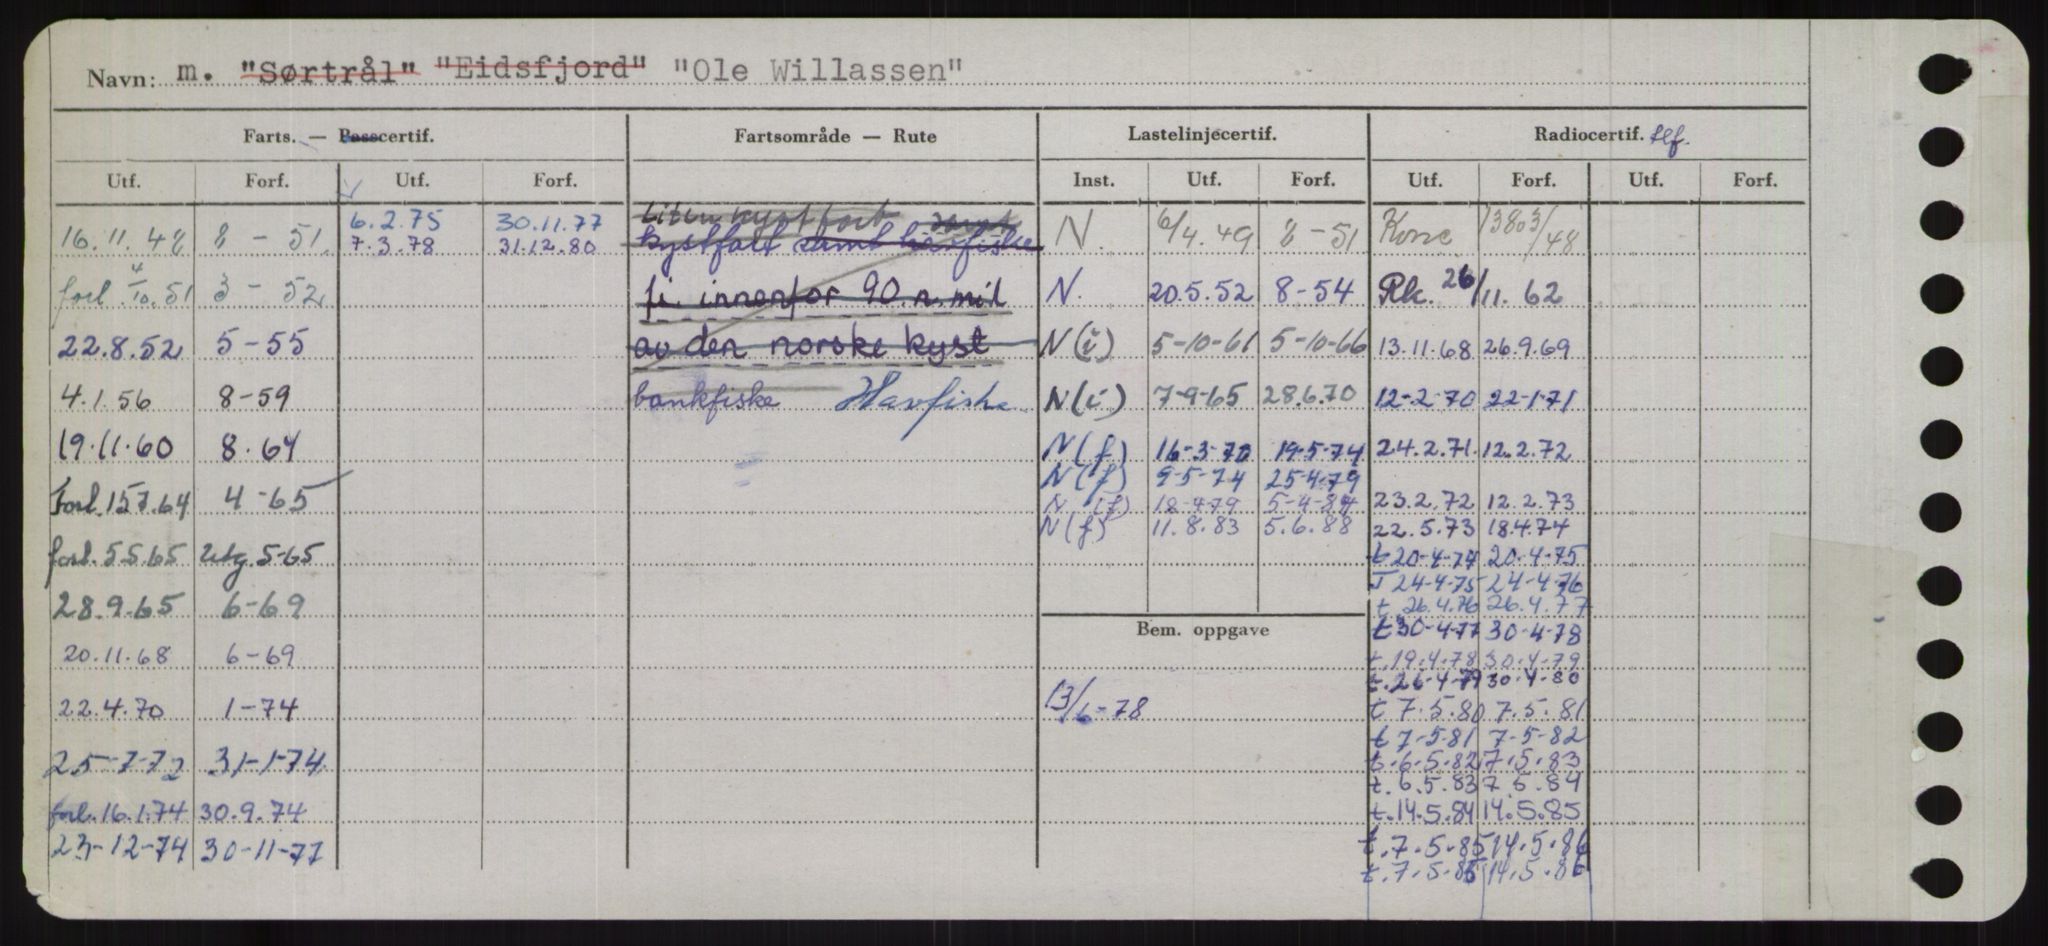 Navn: m. "Sørtrål" "Eidsfjord" "Ole Willassen"
Farts. — Passcertif. Fartsområde — Rute Lastelinjecertif. Radiocertif. tlf.
Utf. Forf. Utf. Forf. Inst. Utf. Forf. Utf. Forf. Utf. Forf.
16.11.48 8-51. 6.2.75 30.11.77 Liten kystfart samt N. 6/4.49 8-51 Konc 13803/48
7.3.78 31.12.80 kystfart samt havfiske
forl. 4/10.51 3-52 fi. innenfor 90 n.mil N. 20.5.52 8-54 Rk. 26/11.62
22.8.52 5-55 av den norske kyst N(i) 5-10-61 5-10-66 13.11.68 26.9.69
4.1.56 8-59 bankfiske Havfiske N(i) 7-9-65 28.6.70 12-2-70 22-1-71
19.11.60 8.64 N(f) 16-3-70 19-5-74 24.2.71. 12.2.72
N(f) 9-5-74 25-4-79
Forl. 15.7.64 4-65 N(f) 18-4-79 5-4-84 23.2.72 12.2.73
N(f) 11.8.83 5.6.88 22.5.73 18.4.74
forl. 5.5.65 Utg. 5-65 t 20-4-74 20.4-75
T 24-4-75 24-4-76
28.9.65 6-69 t. 26.4.76 26.4.77
Bem. oppgave t 30-4-77 30-4-78
20.11.68 6-69 t.19.4.78 30.4.79
t.26-4-79 30-4-80
22.4.70 1-74 13/6-78 t 7.5.80 7.5.81
t 7-5-81 7-5-82
25-7-72 31-1-74. t.6.5.82 7.5.83
t.6.5.83 7.5.84
forl. 16.1.74 30.9.74 t.14.5.84 14.5.85
23-12-74 30-11-77 t.7.5.85 14.5.86
t.7.5.86 14.5.86